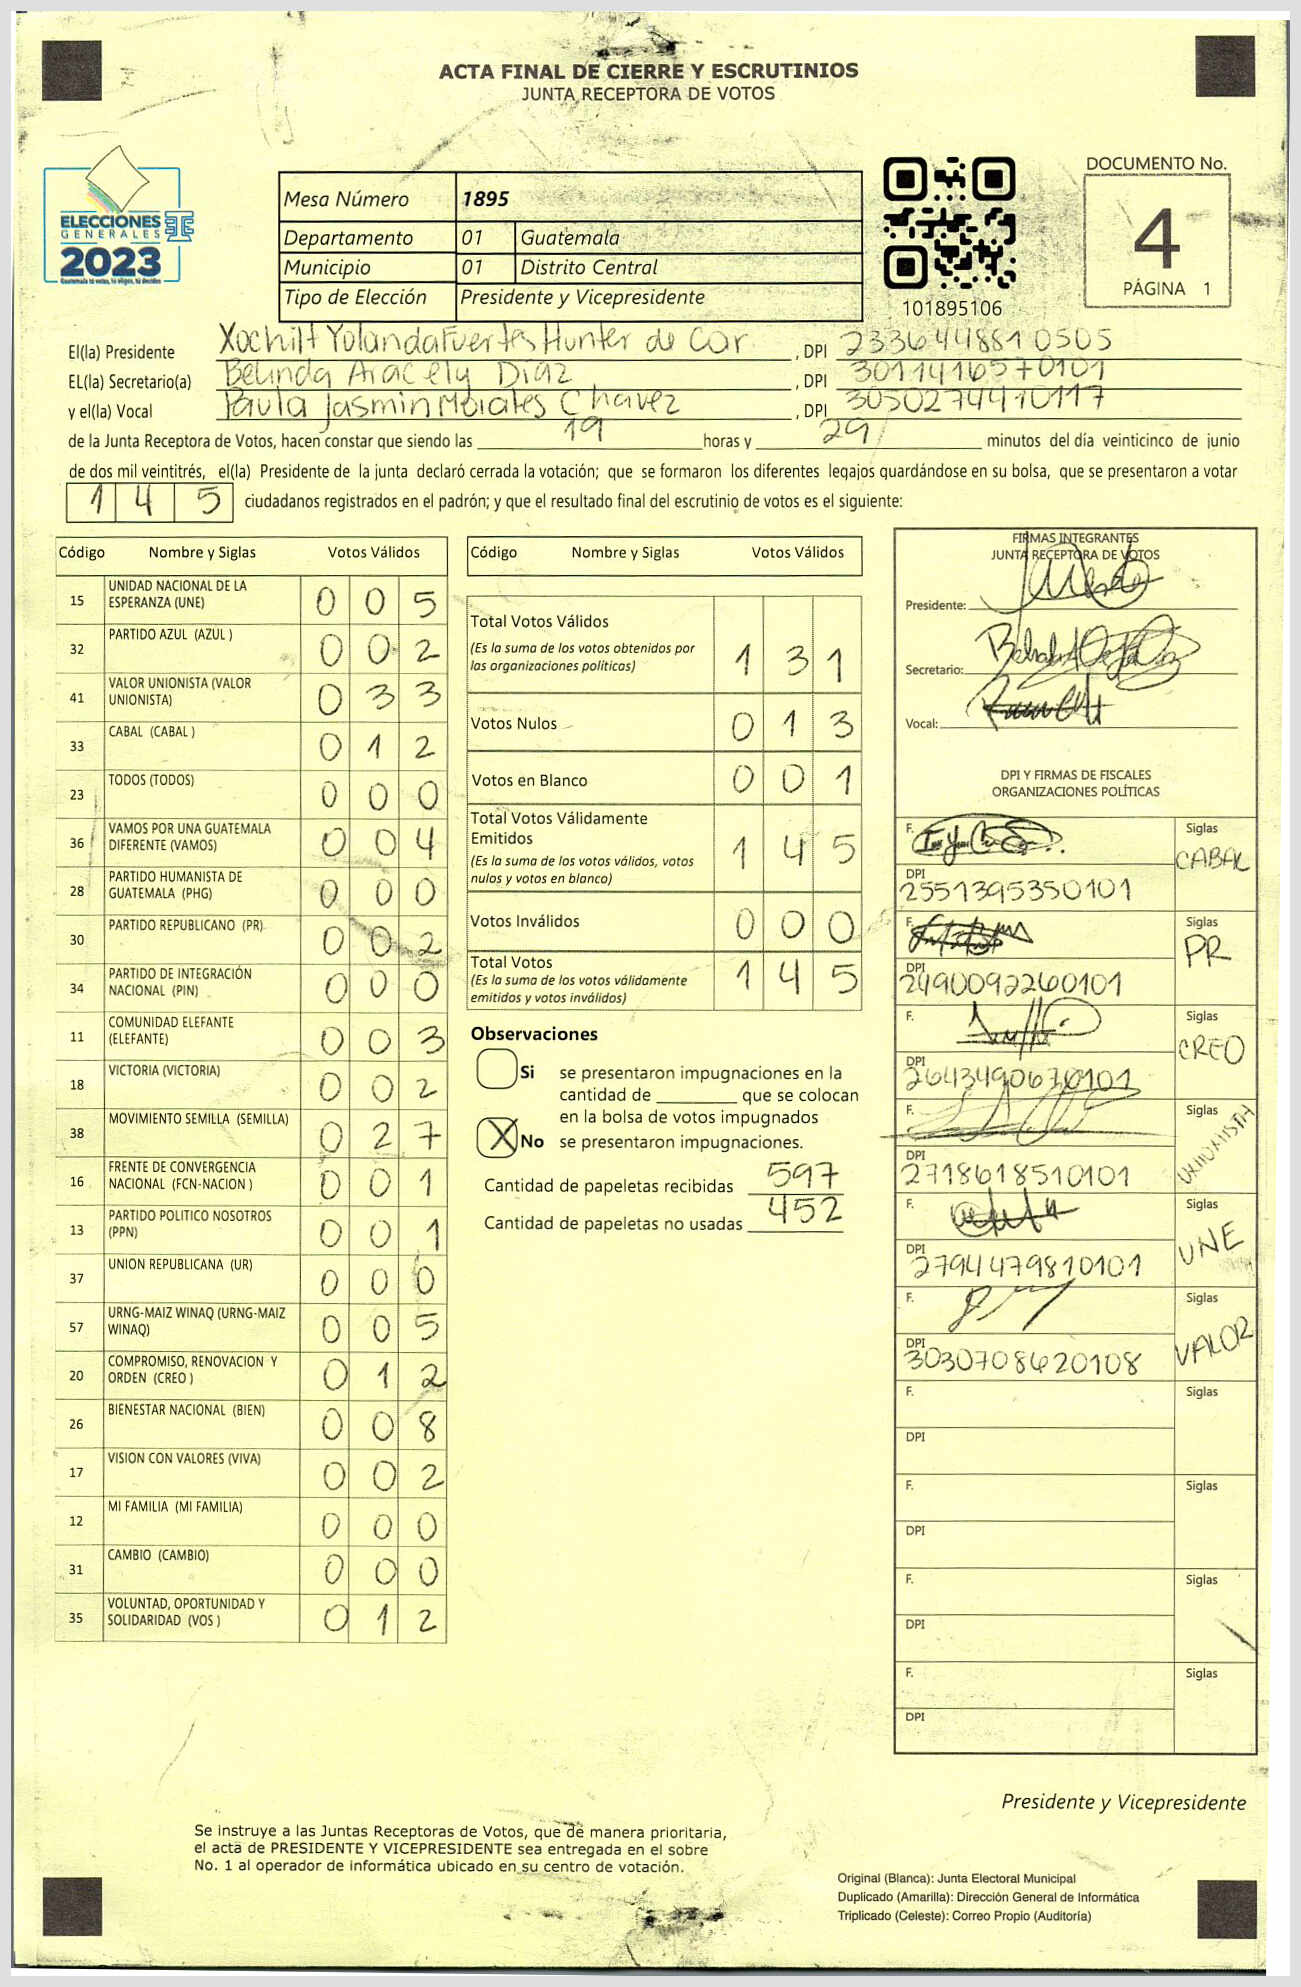 ACTA FINAL DE CIERRE Y ESCRUTINIOS
JUNTA RECEPTORA DE VOTOS
ELECCIONES
GENERALES
2023
Guatemala tú votas, tú eliges, tú decides
Mesa Número 1895
Departamento 01 Guatemala
Municipio 01 Distrito Central
Tipo de Elección Presidente y Vicepresidente
101895106
DOCUMENTO No.
4
PÁGINA 1
El(la) Presidente Xochilt Yolanda Fuertes Hunter de Cor , DPI 2336448810505
EL(la) Secretario(a) Belinda Aracely Díaz , DPI 3011416570101
y el(la) Vocal Paula Jasmin Morales Chavez , DPI 3050274410117
de la Junta Receptora de Votos, hacen constar que siendo las 19 horas y 29 minutos del día veinticinco de junio
de dos mil veintitrés, el(la) Presidente de la junta declaró cerrada la votación; que se formaron los diferentes legajos quardándose en su bolsa, que se presentaron a votar
1 4 5 ciudadanos registrados en el padrón; y que el resultado final del escrutinio de votos es el siguiente:
Código Nombre y Siglas Votos Válidos
15 UNIDAD NACIONAL DE LA ESPERANZA (UNE) 0 0 5
32 PARTIDO AZUL (AZUL ) 0 0 2
41 VALOR UNIONISTA (VALOR UNIONISTA) 0 3 3
33 CABAL (CABAL ) 0 1 2
23 TODOS (TODOS) 0 0 0
36 VAMOS POR UNA GUATEMALA DIFERENTE (VAMOS) 0 0 4
28 PARTIDO HUMANISTA DE GUATEMALA (PHG) 0 0 0
30 PARTIDO REPUBLICANO (PR) 0 0 2
34 PARTIDO DE INTEGRACIÓN NACIONAL (PIN) 0 0 0
11 COMUNIDAD ELEFANTE (ELEFANTE) 0 0 3
18 VICTORIA (VICTORIA) 0 0 2
38 MOVIMIENTO SEMILLA (SEMILLA) 0 2 7
16 FRENTE DE CONVERGENCIA NACIONAL (FCN-NACION ) 0 0 1
13 PARTIDO POLITICO NOSOTROS (PPN) 0 0 1
37 UNION REPUBLICANA (UR) 0 0 0
57 URNG-MAIZ WINAQ (URNG-MAIZ WINAQ) 0 0 5
20 COMPROMISO, RENOVACION Y ORDEN (CREO ) 0 1 2
26 BIENESTAR NACIONAL (BIEN) 0 0 8
17 VISION CON VALORES (VIVA) 0 0 2
12 MI FAMILIA (MI FAMILIA) 0 0 0
31 CAMBIO (CAMBIO) 0 0 0
35 VOLUNTAD, OPORTUNIDAD Y SOLIDARIDAD (VOS ) 0 1 2
Código Nombre y Siglas Votos Válidos
Total Votos Válidos 1 3 1
(Es la suma de los votos obtenidos por
las organizaciones políticas)
Votos Nulos 0 1 3
Votos en Blanco 0 0 1
Total Votos Válidamente
Emitidos 1 4 5
(Es la suma de los votos válidos, votos
nulos y votos en blanco)
Votos Inválidos 0 0 0
Total Votos 1 4 5
(Es la suma de los votos válidamente
emitidos y votos inválidos)
Observaciones
Si se presentaron impugnaciones en la
cantidad de ________ que se colocan
en la bolsa de votos impugnados
X No se presentaron impugnaciones.
Cantidad de papeletas recibidas 597
Cantidad de papeletas no usadas 452
FIRMAS INTEGRANTES
JUNTA RECEPTORA DE VOTOS
Presidente:
Secretario:
Vocal:
DPI Y FIRMAS DE FISCALES
ORGANIZACIONES POLÍTICAS
F. Siglas CABAL
DPI 2551395350101
F. Siglas PR
DPI 2490092260101
F. Siglas CREO
DPI 2643490670101
F. Siglas UNIONISTA
DPI 2718618510101
F. Siglas UNE
DPI 2794479810101
F. Siglas VALOR
DPI 3030708620108
F. Siglas
DPI
F. Siglas
DPI
F. Siglas
DPI
F. Siglas
DPI
Presidente y Vicepresidente
Se instruye a las Juntas Receptoras de Votos, que de manera prioritaria,
el acta de PRESIDENTE Y VICEPRESIDENTE sea entregada en el sobre
No. 1 al operador de informática ubicado en su centro de votación.
Original (Blanca): Junta Electoral Municipal
Duplicado (Amarilla): Dirección General de Informática
Triplicado (Celeste): Correo Propio (Auditoría)